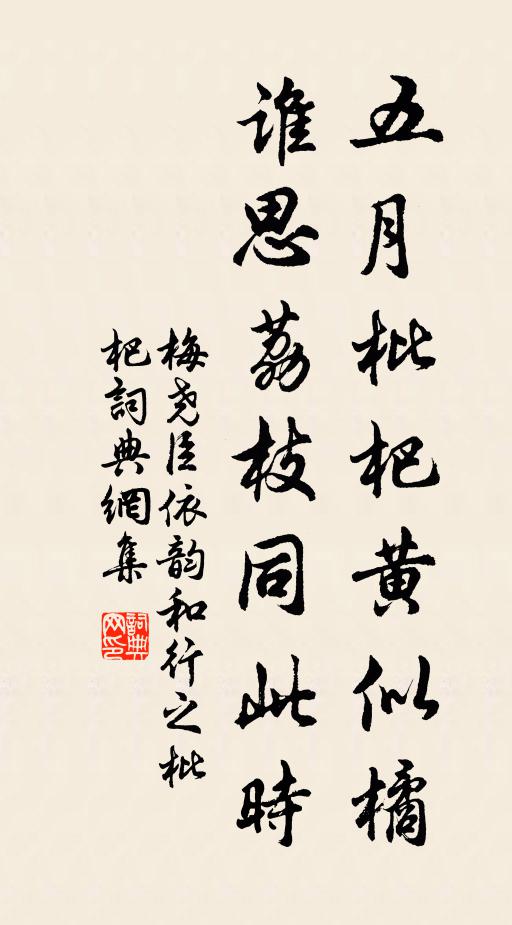 五月枇杷黄似橘
谁思荔枝同此時
梅尧臣依韵和行之枇
杷詞典網集
詞典网印